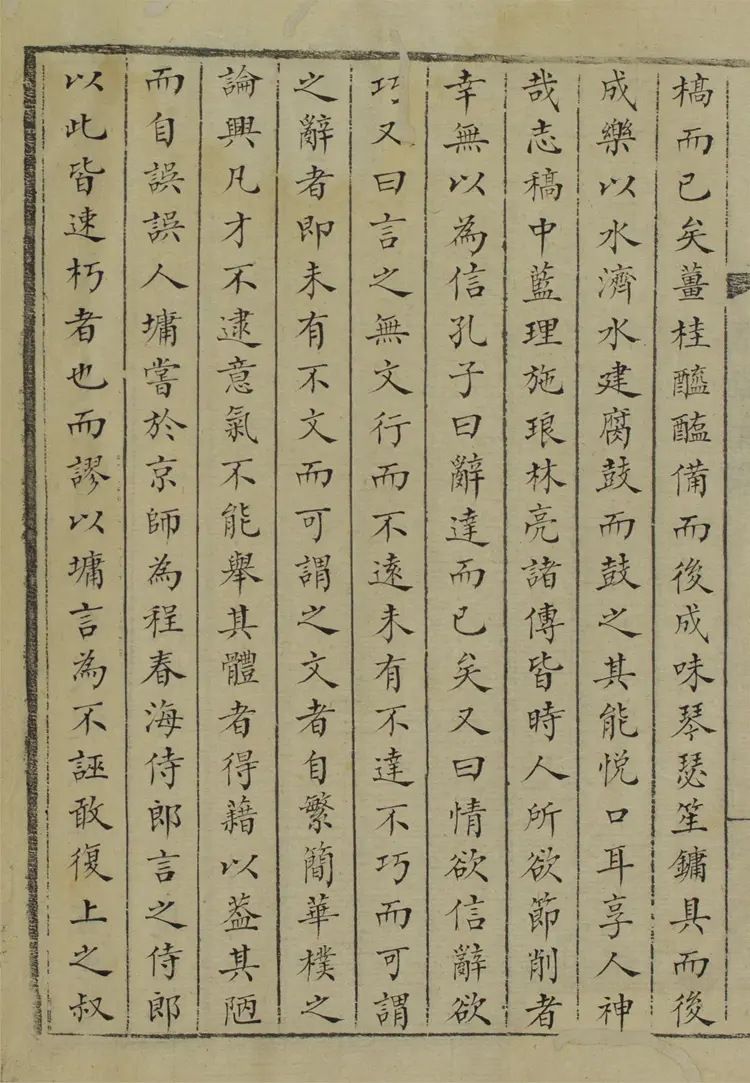 槁而已矣薑桂醯醢備而後成味琴瑟笙鏞具而後
成樂以水濟水建腐鼓而鼓之其能悅口耳享人神
哉志稿中藍理施琅林亮諸傳皆時人所欲節削者
幸無以為信孔子曰辭達而已矣又曰情欲信辭欲
巧又曰言之無文行而不遠未有不達不巧而可謂
之辭者即未有不文而可謂之文者自繁簡華樸之
論興凡才不逮意氣不能舉其體者得藉以葢其陋
而自誤誤人墉嘗於京師為程春海侍郎言之侍郎
以此皆速朽者也而謬以墉言為不誣敢復上之叔